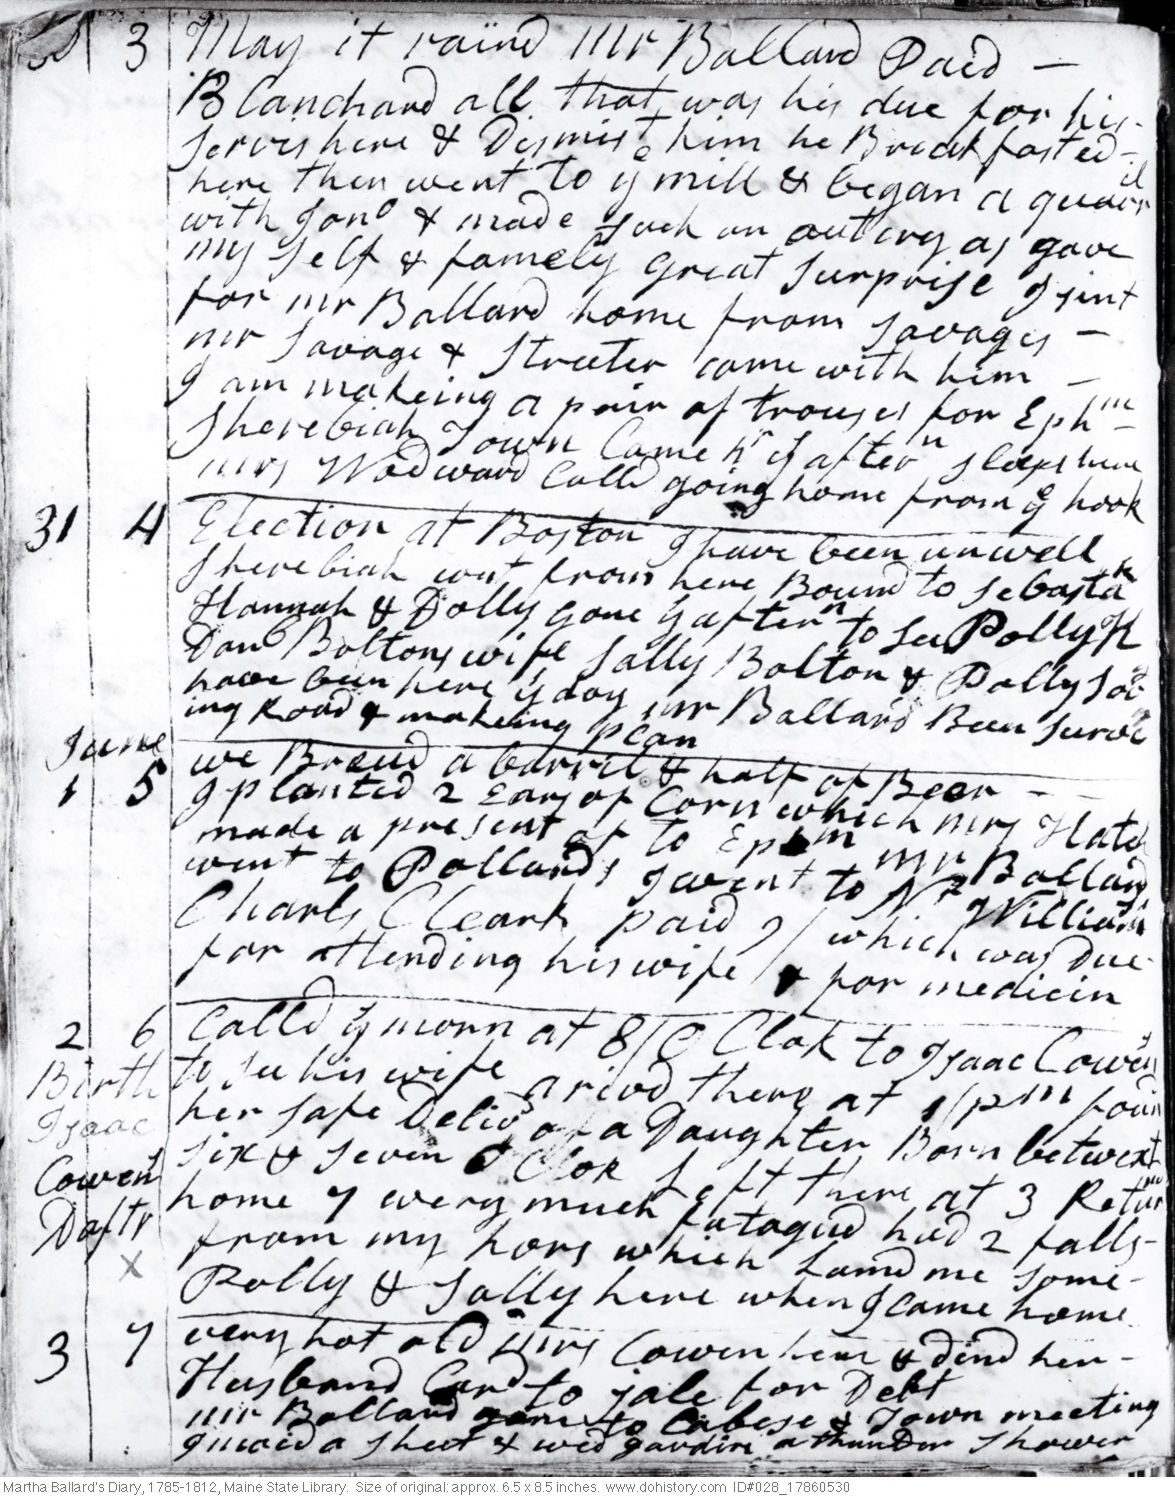 3 May it raind Mr Ballard Paid —
Blanchard all that was his due for his
serves here & Dismist him he Breakfasted
here then went to ye mill & began a quarril
with Jono & made such an outcry as gave
my self & famely great surprise I sent
for mr Ballard home from Savages —
mr Savage & Streeter came with him —
I am makeing a pair of trouses for Ephm
Sherebiah Town Came hr ys aftern sleeps here
mrs Woodward Calld going home from ye hook
31 4 Election at Boston I have been unwell
Sherebiah wnt from here Bound to Sebasta k
Hannah & Dolly gone ys aftern to see Polly H
Danl Boltons wife Sally Bolton & Polly
have been here ys day mr Ballard Been Survei
ing Road & makeing plan
June
1 5 we Breud a barril & half of Beer —
I planted 2 Ears of Corn which mrs Hatch
made a present of to Ephm mr Ballard
went to Pollards I went to Nr William
Charls Cleark paid 9/ which was Due
for attending his wife & for medicin
2 6 Calld ys morn at 8/O Clok to Isaac Cowen
Birth
to see his wife arivd there at 1/pm foun
Isaac
her safe Delivd of a Daughter Born betwext
Cowens
six & seven O Clok I left there at 3 Return
Daftr
home 7 every much fatagud had 2 falls
from my hors which Lamd me some
X
Polly & Sally here when I came home
3 7 very hot old mrs Cowen here & dind her
Husband Card to jale for Debt
mr Ballard gone to Cabese & Town meeting
quiold a sheet & wed gardin a thunder shower
Martha Ballard's Diary, 1785-1812, Maine State Library. Size of original: approx. 6.5 x 8.5 inches. www.dohistory.com ID#028_17860530